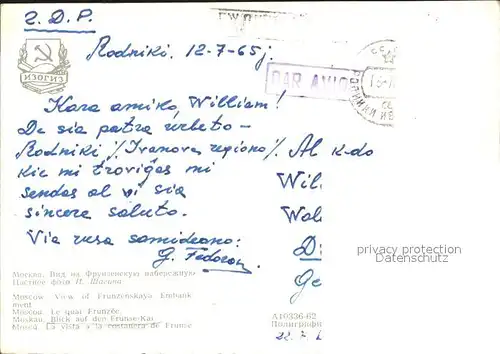 Rodniki. 12-7-65j.
ИЗОГИЗ
PAR AVION
Kara amiko, William!
De sia patra urbeto –
Rodniki /Ivanova regiono/.
kie mi troviĝas mi
sendas al vi sia
sincera saluto.
Via rusa samideano:
G. Fedorov.
Al k-do
Wil
Wal
D
Ge
privacy protection
Москва. Вид на Фрунзенскую набережную
Цветное фото Н. Шагина
Moscow View of Frunzenskaya Embank
ment
Moscou. Le quai Frunzée
Moskau. Blick auf den Frunse-Kai
Moscú. La vista a la costanera de Frunse
А10336-62
Полиграфи